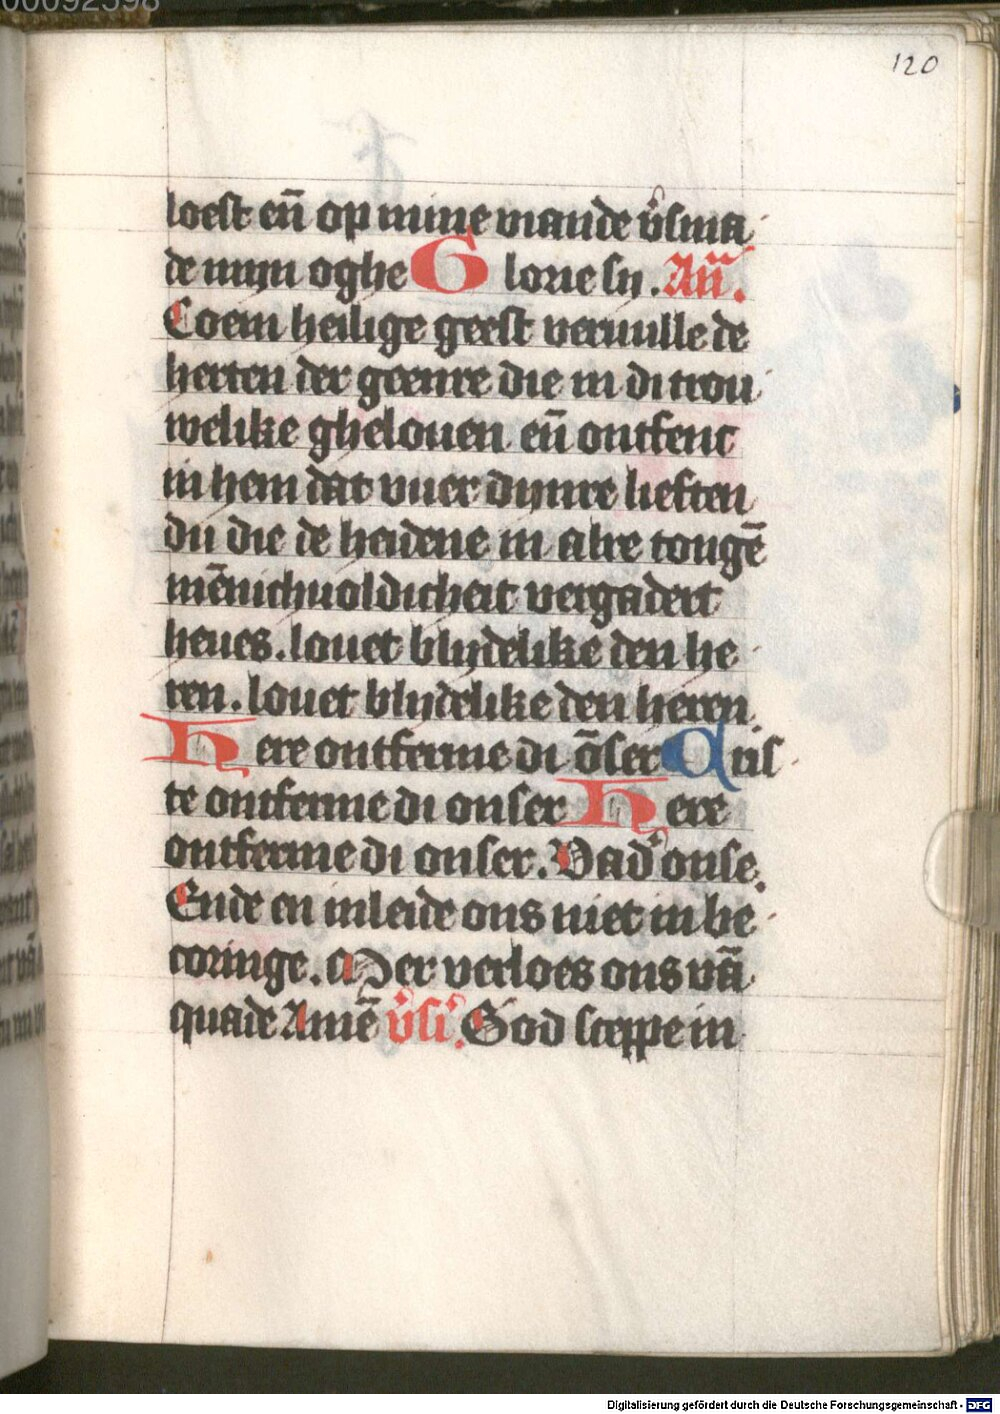 00092598
120
loest en̄ op mine viande v̉sma
de mijn oghe Glorie sy. An̄.
Coem heilige geest veruulle de
herten der geenre die in di trou
welike ghelouen en̄ ontfenc
in hem dat vuer dijnre lieften
du die de heidene in alre tongē
mēnichuoldicheit vergadert
heues. louet blijdelike den he
ren. louet blijdelike den heren.
Here ontferme di ōser Cris
te ontferme di onser Here
ontferme di onser. Vad' onse.
Ende en inleide ons niet in be
coringe. Mer verloes ons vā
quade Amē v̉si. God sceppe in
Digitalisierung gefördert durch die Deutsche Forschungsgemeinschaft - DFG